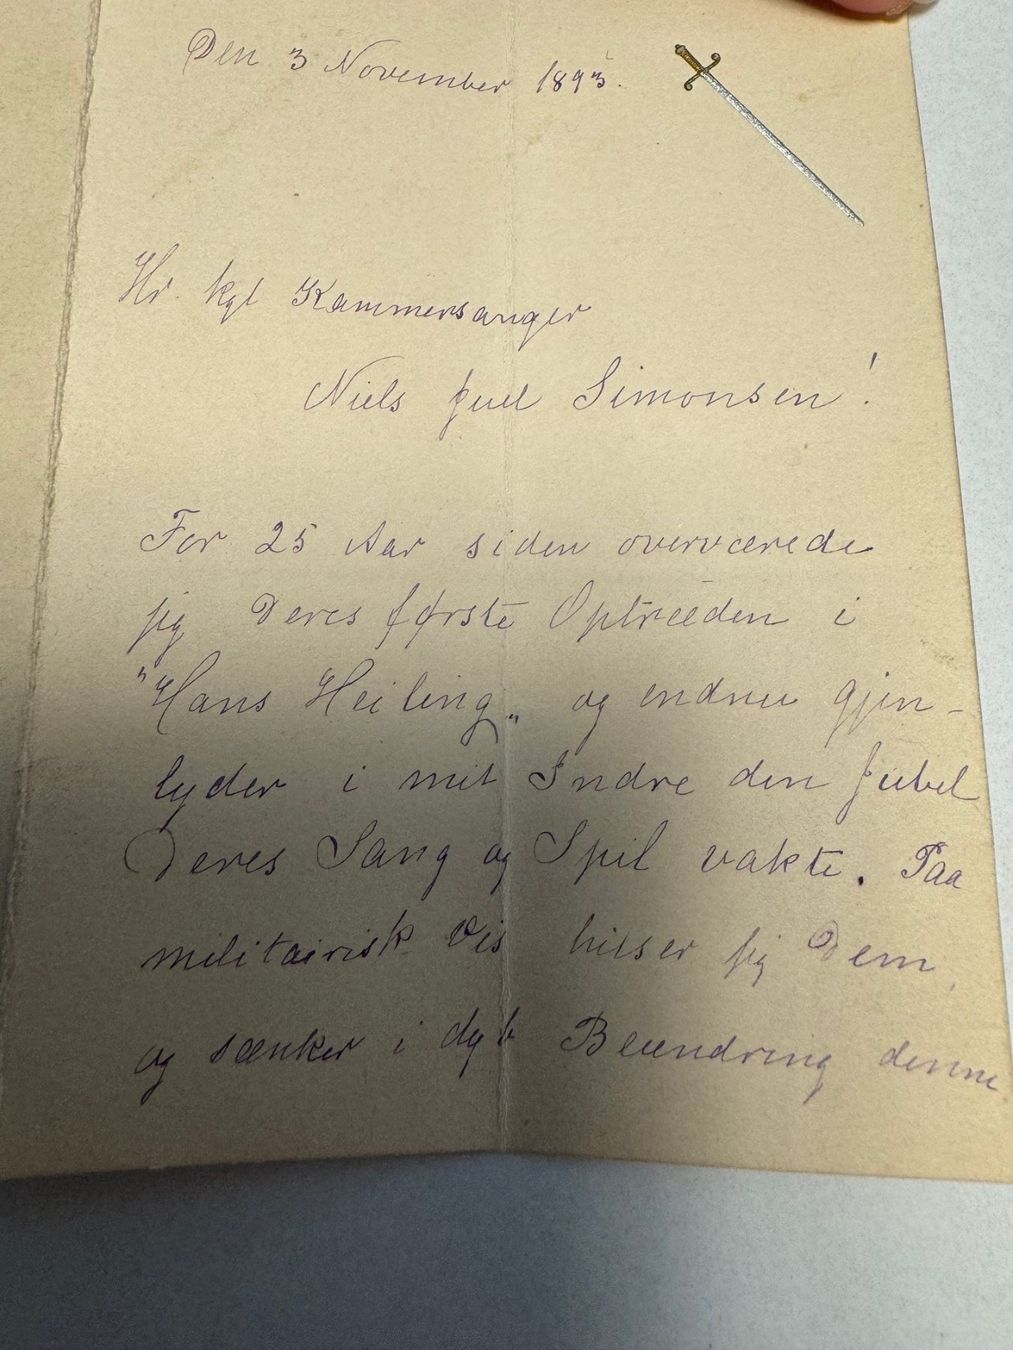 Den 3 November 1893.
Hr. kgl Kammersanger
Niels Juel Simonsen!
For 25 Aar siden overværede
jeg Deres første Optræden i
"Hans Heiling„ og endnu gjen-
lyder i mit Indre den Jubel
Deres Sang og Spil vakte. Paa
militairisk Vis hilser jeg Dem,
og sænker i dyb Beundring denne